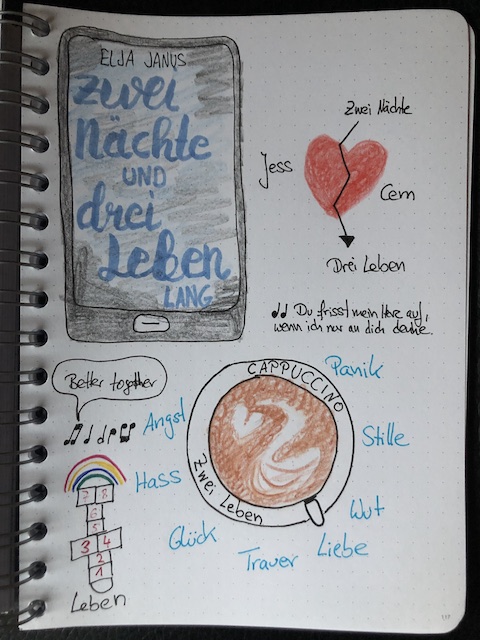 ELJA JANUS
zwei
Nächte
UND
drei
Leben
LANG
Zwei Nächte
Jess
Cem
Drei Leben
♫ Du frisst mein Herz auf,
wenn ich nur an dich denke.
Better together
CAPPUCCINO
Zwei Leben
Panik
Stille
Wut
Liebe
Trauer
Glück
Hass
Angst
7 8
6
5
3 4
2
1
Leben